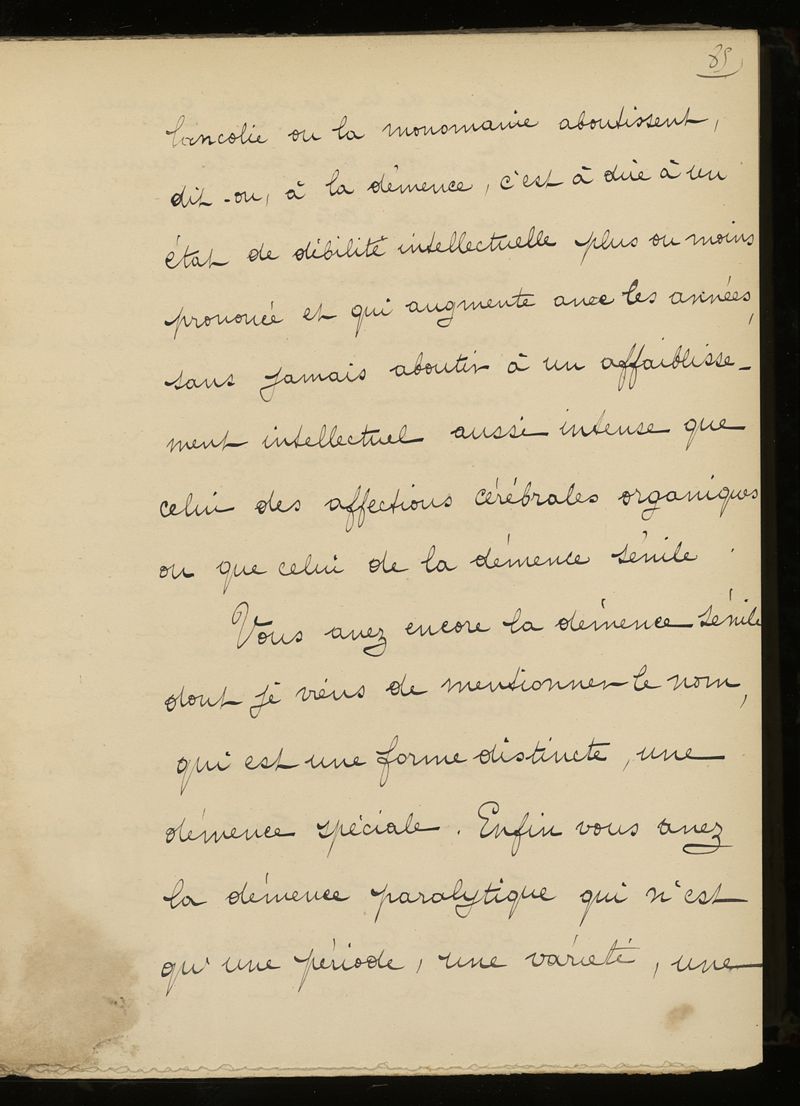 85
lancolie ou la monomanie aboutissent,
dit-on, à la démence, c'est à dire à un
état de débilité intellectuelle plus ou moins
prononcé et qui augmente avec les années,
sans jamais aboutir à un affaiblisse-
ment intellectuel aussi intense que
celui des affections cérébrales organiques
ou que celui de la démence sénile.
Vous avez encore la démence sénile
dont je viens de mentionner le nom,
qui est une forme distincte, une
démence spéciale. Enfin vous avez
la démence paralytique qui n'est
qu'une période, une variété, une